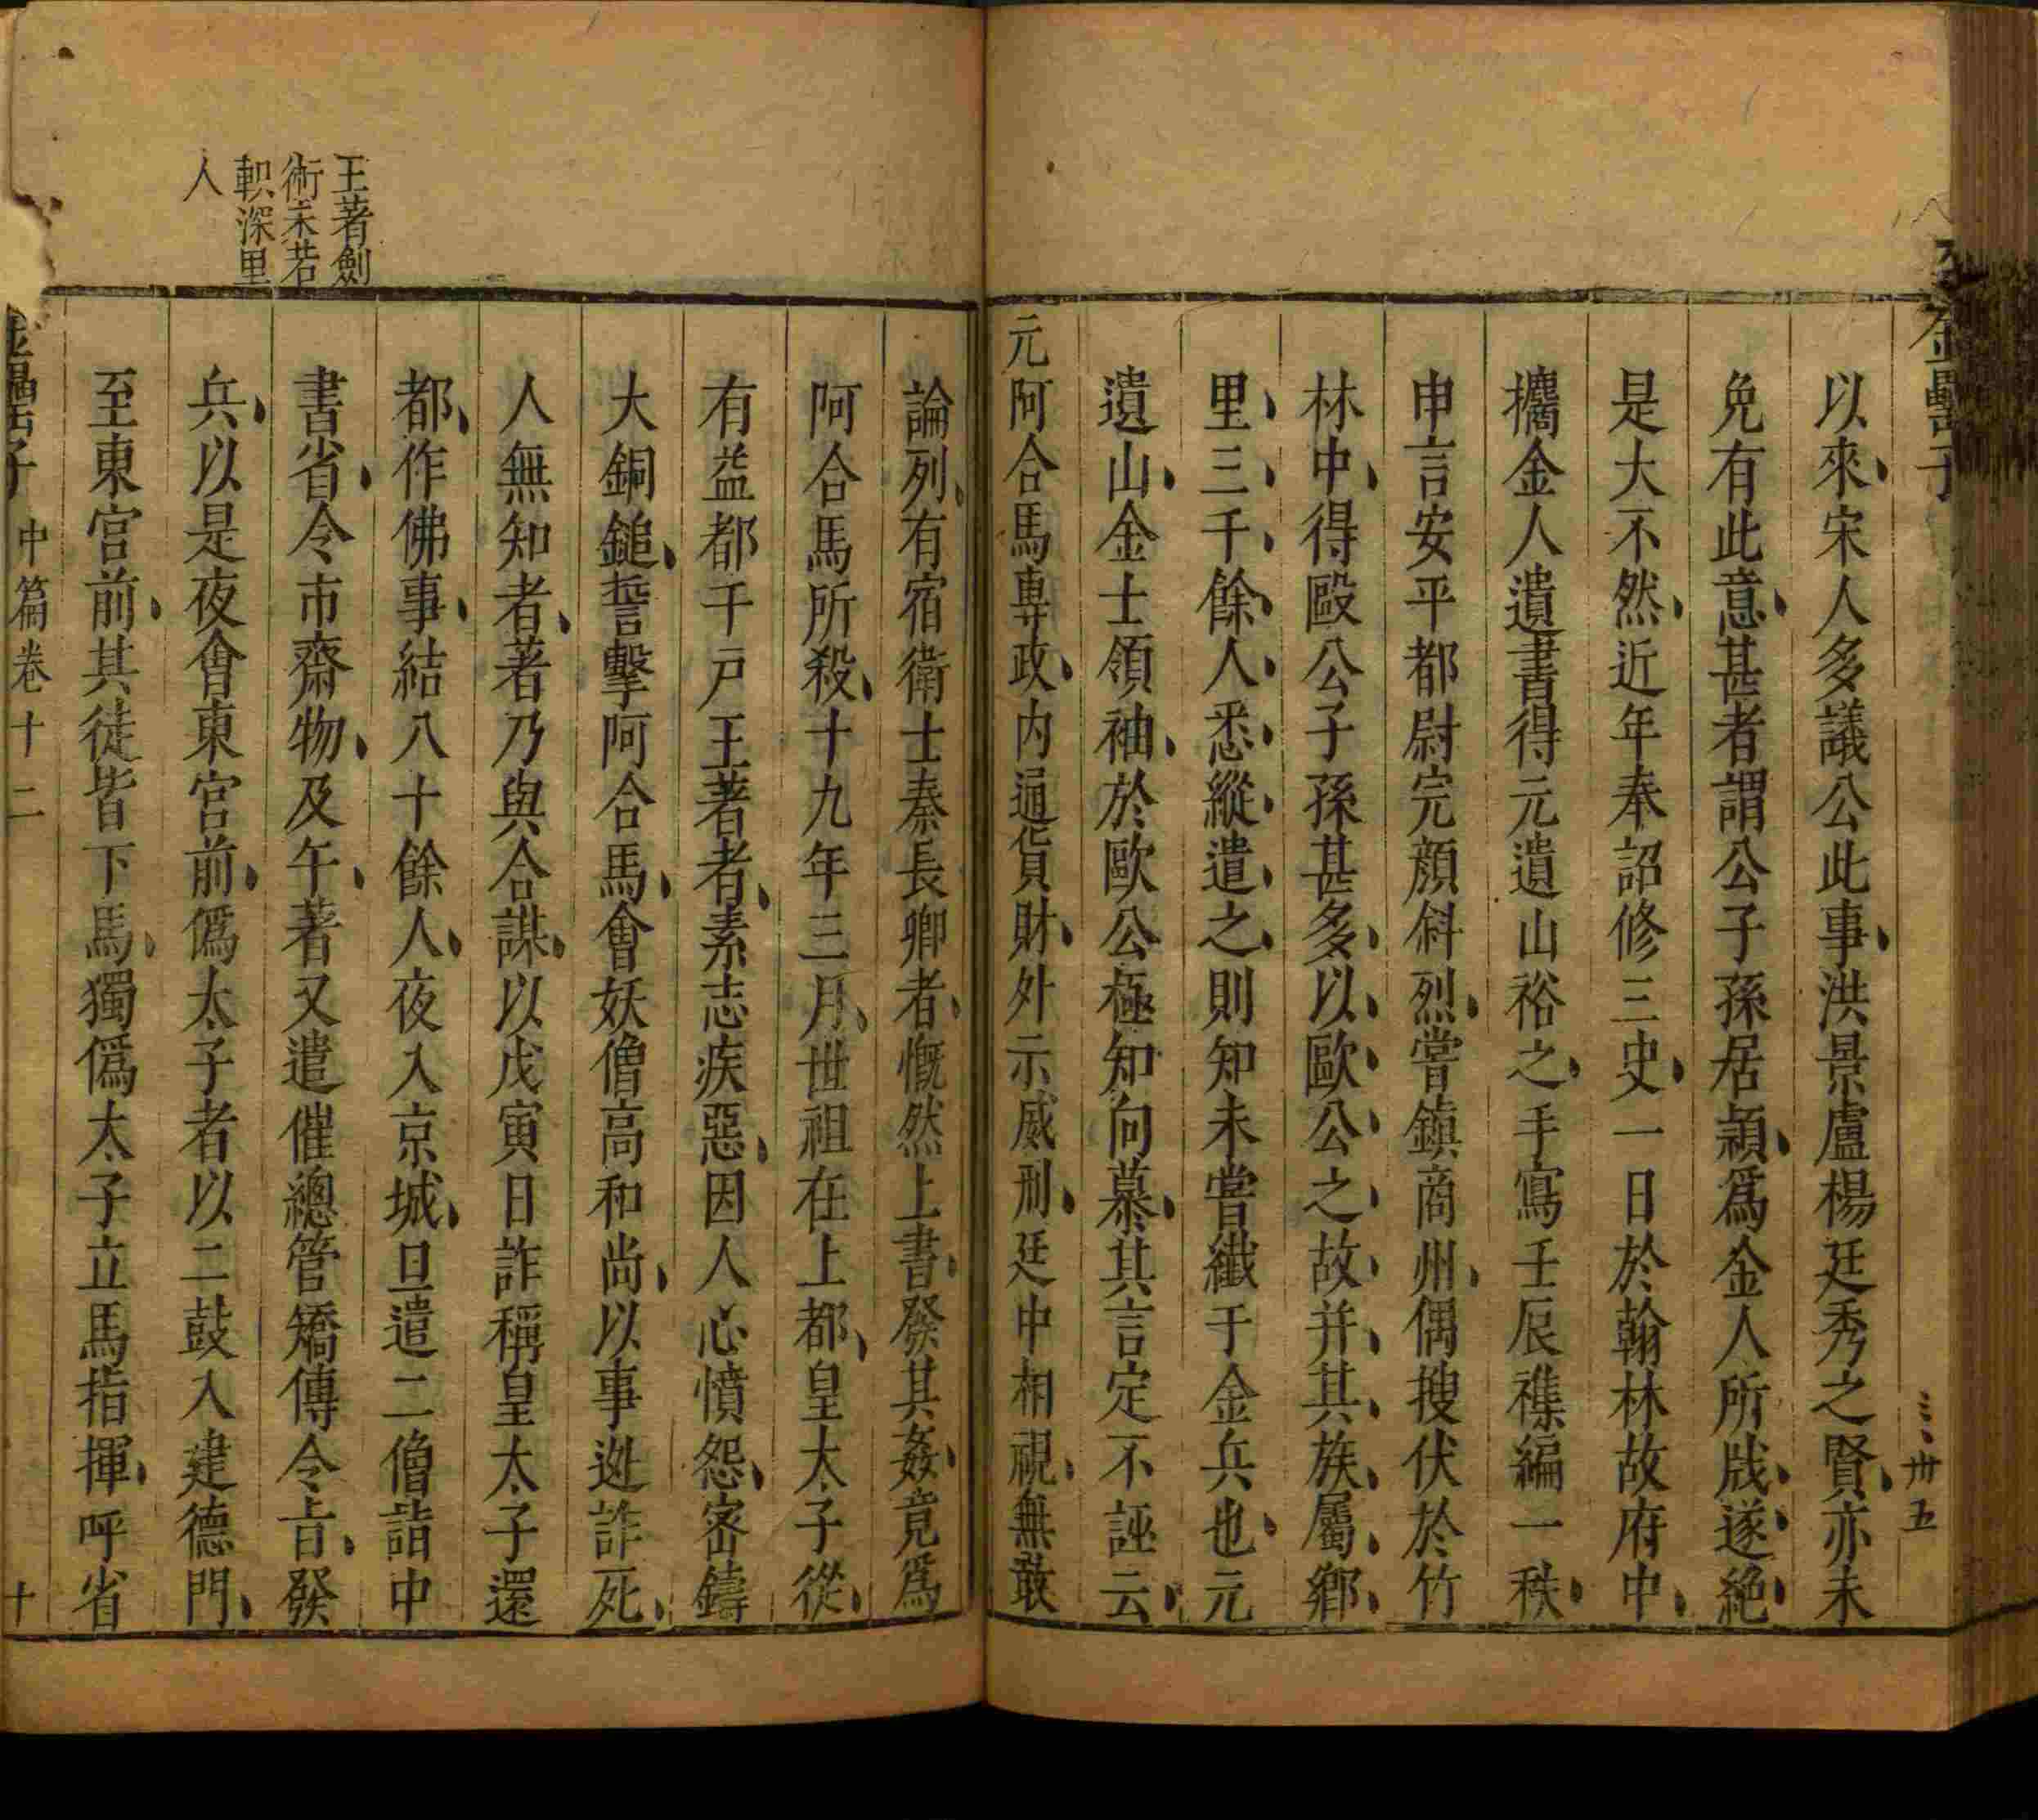 金罍子
三卅五
以來宋人多議公此事洪景盧楊廷秀之賢亦未
免有此意甚者謂公子孫居潁爲金人所戕遂絶
是大不然近年奉詔修三史一日於翰林故府中
攟金人遺書得元遺山裕之手寫壬辰襍編一秩
申言安平都尉完顔斜烈嘗鎮商州偶搜伏於竹
林中得毆公子孫甚多以歐公之故并其族屬鄉
里三千餘人悉縱遣之則知未嘗纎于金兵也元
遺山金士領袖於歐公極知向慕其言定不誣云
元阿合馬專政内通貨財外示威刑廷中相視無敢
論列有宿衛士秦長卿者慨然上書發其姦竟爲
阿合馬所殺十九年三月世祖在上都皇太子從
有益都千戸王著者素志疾惡因人心憤怨宻鑄
大銅鎚誓擊阿合馬會妖僧高和尚以事逃詐死
人無知者著乃與合謀以戊寅日詐稱皇太子還
都作佛事結八十餘人夜入京城旦遣二僧詣中
書省令市齋物及午著又遣催總管矯傳令㫖發
兵以是夜會東宫前僞太子者以二鼓入建德門
至東宫前其徒皆下馬獨僞太子立馬指揮呼省
王著劍
術未若
軹深里
人
金罍子 中篇卷十二 十